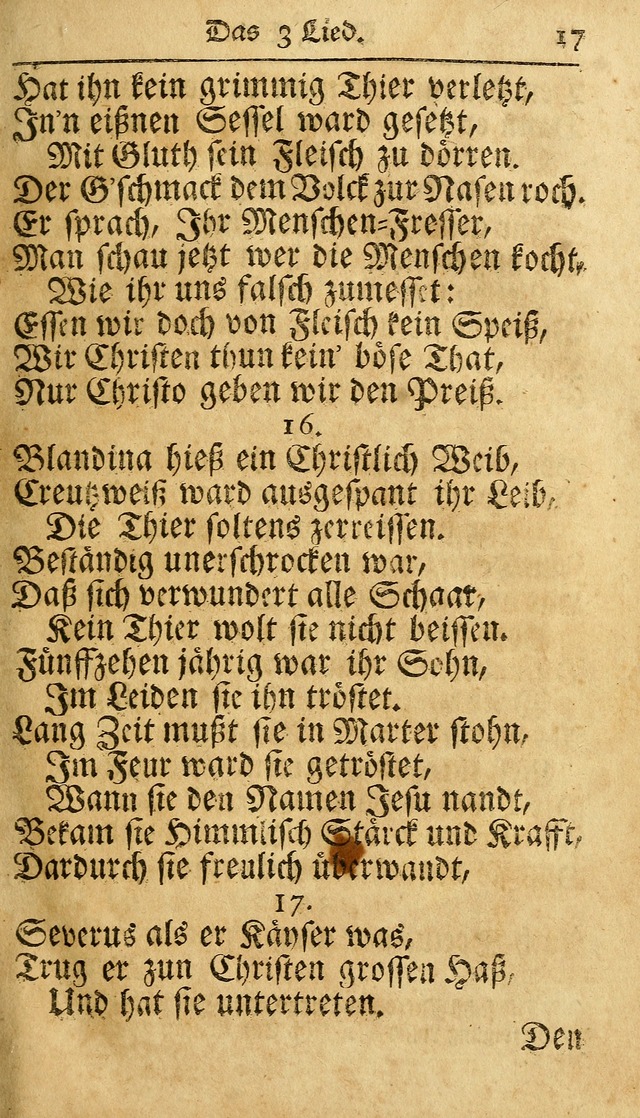 Das 3 Lied. 17
Hat ihn kein grimmig Thier verletzt,
In'n eißnen Sessel ward gesetzt,
Mit Gluth sein Fleisch zu dörren.
Der G'schmack dem Volck zur Nasen roch.
Er sprach, Ihr Menschen-Fresser,
Man schau jetzt wer die Menschen kocht,
Wie ihr uns falsch zumesset:
Essen wir doch von Fleisch kein Speiß,
Wir Christen thun kein' böse That,
Nur Christo geben wir den Preiß.
16.
Blandina hieß ein Christlich Weib,
Creutzweiß ward ausgespant ihr Leib,
Die Thier soltens zerreissen.
Beständig unerschrocken war,
Daß sich verwundert alle Schaar,
Kein Thier wolt sie nicht beissen.
Fünffzehen jährig war ihr Sohn,
Im Leiden sie ihn tröstet.
Lang Zeit mußt sie in Marter stohn,
Im Feur ward sie getröstet,
Wann sie den Namen Jesu nandt,
Bekam sie Himmlisch Stärck und Krafft,
Dardurch sie freulich überwandt,
17.
Severus als er Käyser was,
Trug er zun Christen grossen Haß,
Und hat sie untertreten.
Den